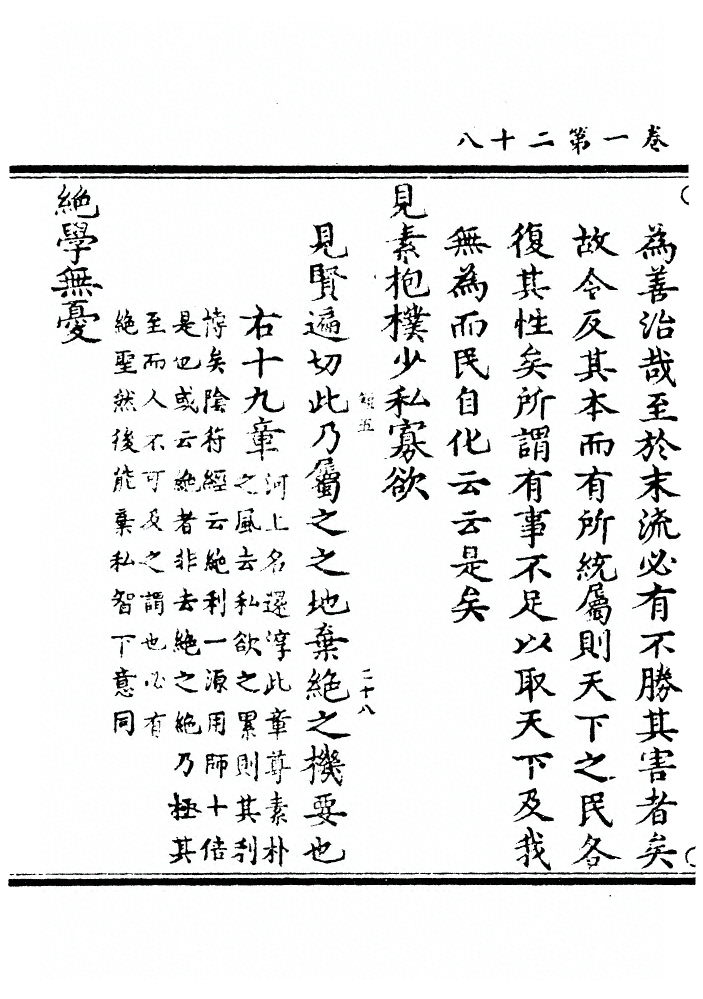 卷一第二十八
為善治哉至於末流必有不勝其害者矣
故令反其本而有所統屬則天下之民各
復其性矣所謂有事不足以取天下及我
無為而民自化云云是矣
見素抱樸少私寡欲
見賢遍切此乃屬之之地棄絕之機要也
二十八
右十九章河上名還淳此章尊素朴
之風去私欲之累則其利
博矣陰符經云絕利一源用師十倍
是也或云絕者非去絕之絕乃極其
至而人不可及之謂也必有
絕聖然後能棄私智下意同
絕學無憂